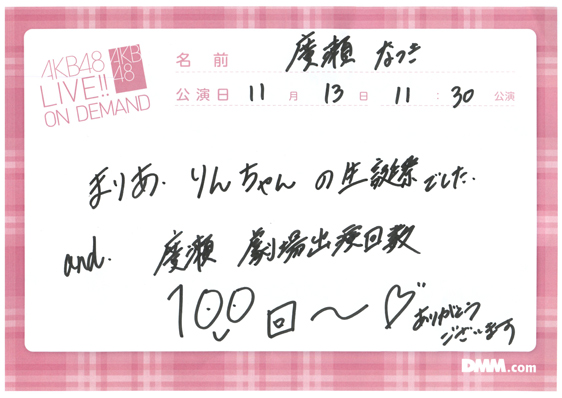 AKB48
LIVE!!
ON DEMAND
AKB
48
名前 廣瀬 なつき
公演日 11月 13日 11:30 公演
まりあ. りんちゃん の生誕祭でした.
and. 廣瀬 劇場出演回数
100回〜♡ ありがとう
ございます
DMM.com